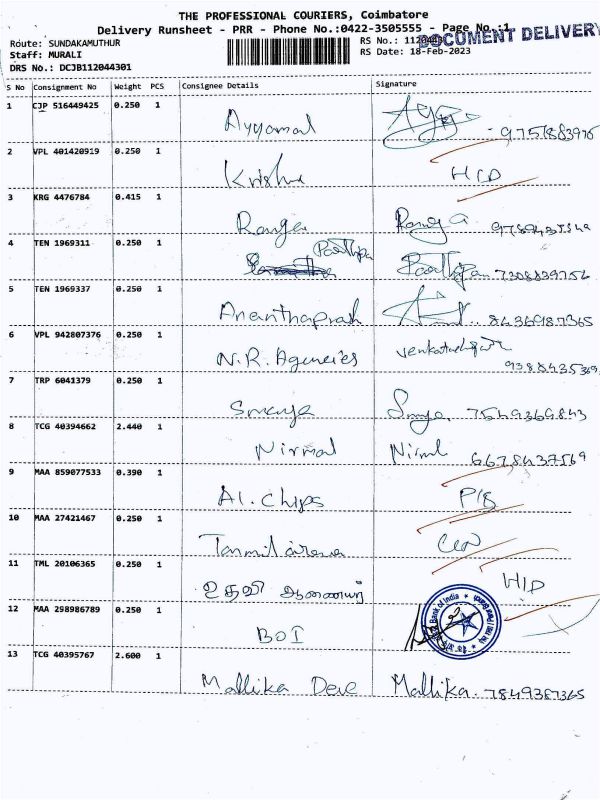 THE PROFESSIONAL COURIERS, Coimbatore
Delivery Runsheet - PRR - Phone No.:0422-3505555 - Page No.:1
DOCUMENT DELIVERY
Route: SUNDAKAMUTHUR
RS No.:
Staff: MURALI
RS Date: 18-Feb-2023
DRS No.: DCJB112044301
S No Consignment No Weight PCS Consignee Details Signature
1 CJP 516449425 0.250 1
Ayyamal 9751883976
2 VPL 401420919 0.250 1
Krishna H/D
3 KRG 4476784 0.415 1
Ranga Ranga
4 TEN 1969311 0.250 1
Parthipan
Parthipan 7308839756
5 TEN 1969337 0.250 1
Ananthaprash 8436987365
6 VPL 942807376 0.250 1
N.R. Agencies 9388435369
7 TRP 6041379 0.250 1
7549369843
8 TCG 40394662 2.440 1
Nirmal Nirml 6678437569
9 MAA 859077533 0.390 1
A1. Chips P/B
10 MAA 27421467 0.250 1
11 TML 20106365 0.250 1
உதவி ஆணையர் H/D
12 MAA 298986789 0.250 1
BOI Bank of India
13 TCG 40395767 2.600 1
Mallika Devi Mallika. 7849387365